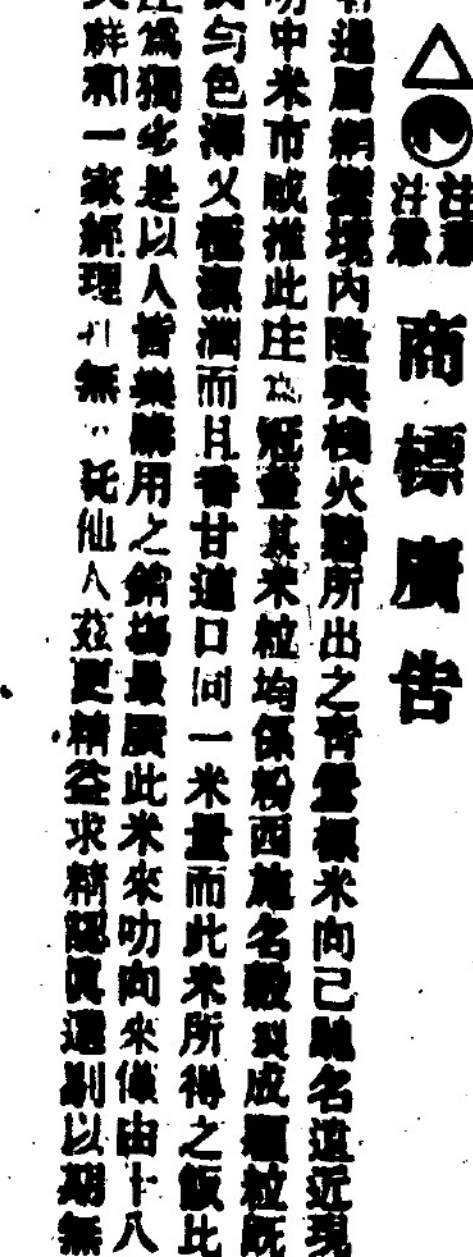 注意
注意
商標廣告
暹屬網巒境內隆興棧火礱所出之青雲標米向已馳名遠近現
叻中米市咸推此庄為冠蓋其米粒均係粉西施名穀製成顆粒既
勻色澤又極潔潤而且香甘適口同一米量而此米所得之飯比
庄為獨多是以人皆樂購用之銷塲最廣此米來叻向來僅由十八
祥和一家經理 無 託仙人茲更精益求精認眞選剔以期無